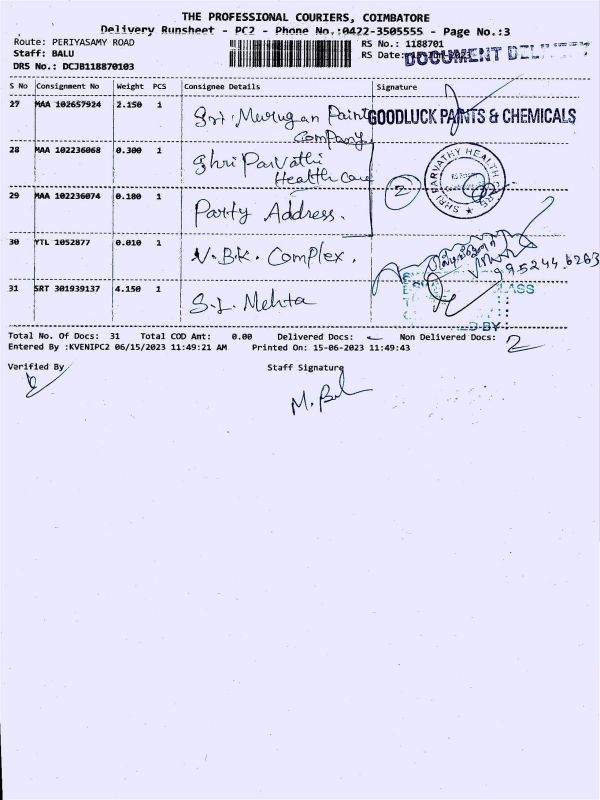 THE PROFESSIONAL COURIERS, COIMBATORE
Delivery Runsheet - PC2 - Phone No.:0422-3505555 - Page No.:3
Route: PERIYASAMY ROAD
RS No.: 1188701
Staff: BALU
RS Date: 15-Jun-2023
DOCUMENT
DRS No.: DCJB118870103
S No Consignment No Weight PCS Consignee Details Signature
27 MAA 102657924 2.150 1 Sri. Murugan Paint Company
GOODLUCK PAINTS & CHEMICALS
28 MAA 102236068 0.300 1 Shri Parvathi Health Care
2
SHRI PARVATHY HEALTH
29 MAA 102236074 0.180 1 Party Address.
30 YTL 1052877 0.010 1 V.B.K. Complex.
31 SRT 301939137 4.150 1 S.L. Mehta
Total No. Of Docs: 31 Total COD Amt: 0.00 Delivered Docs: Non Delivered Docs: 2
Entered By :KVENIPC2 06/15/2023 11:49:21 AM Printed On: 15-06-2023 11:49:43
Verified By Staff Signature